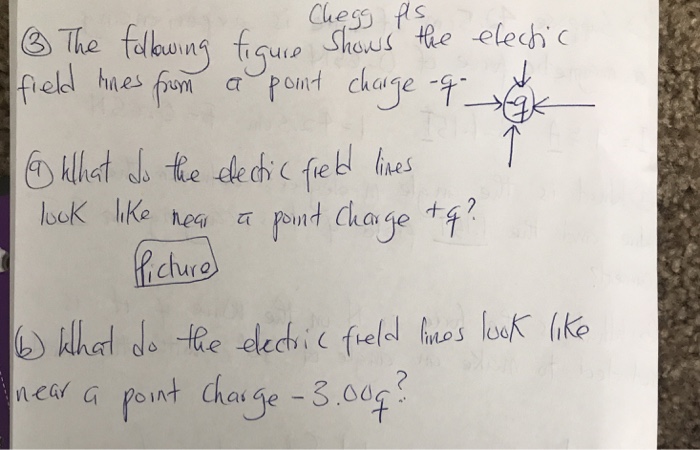 Chegg pls
③ The following figure shows the electric
field lines from a point charge -q-
-q
ⓐ What do the electric field lines
look like near a point charge +q?
Picture
(b) What do the electric field lines look like
near a point charge -3.00q?